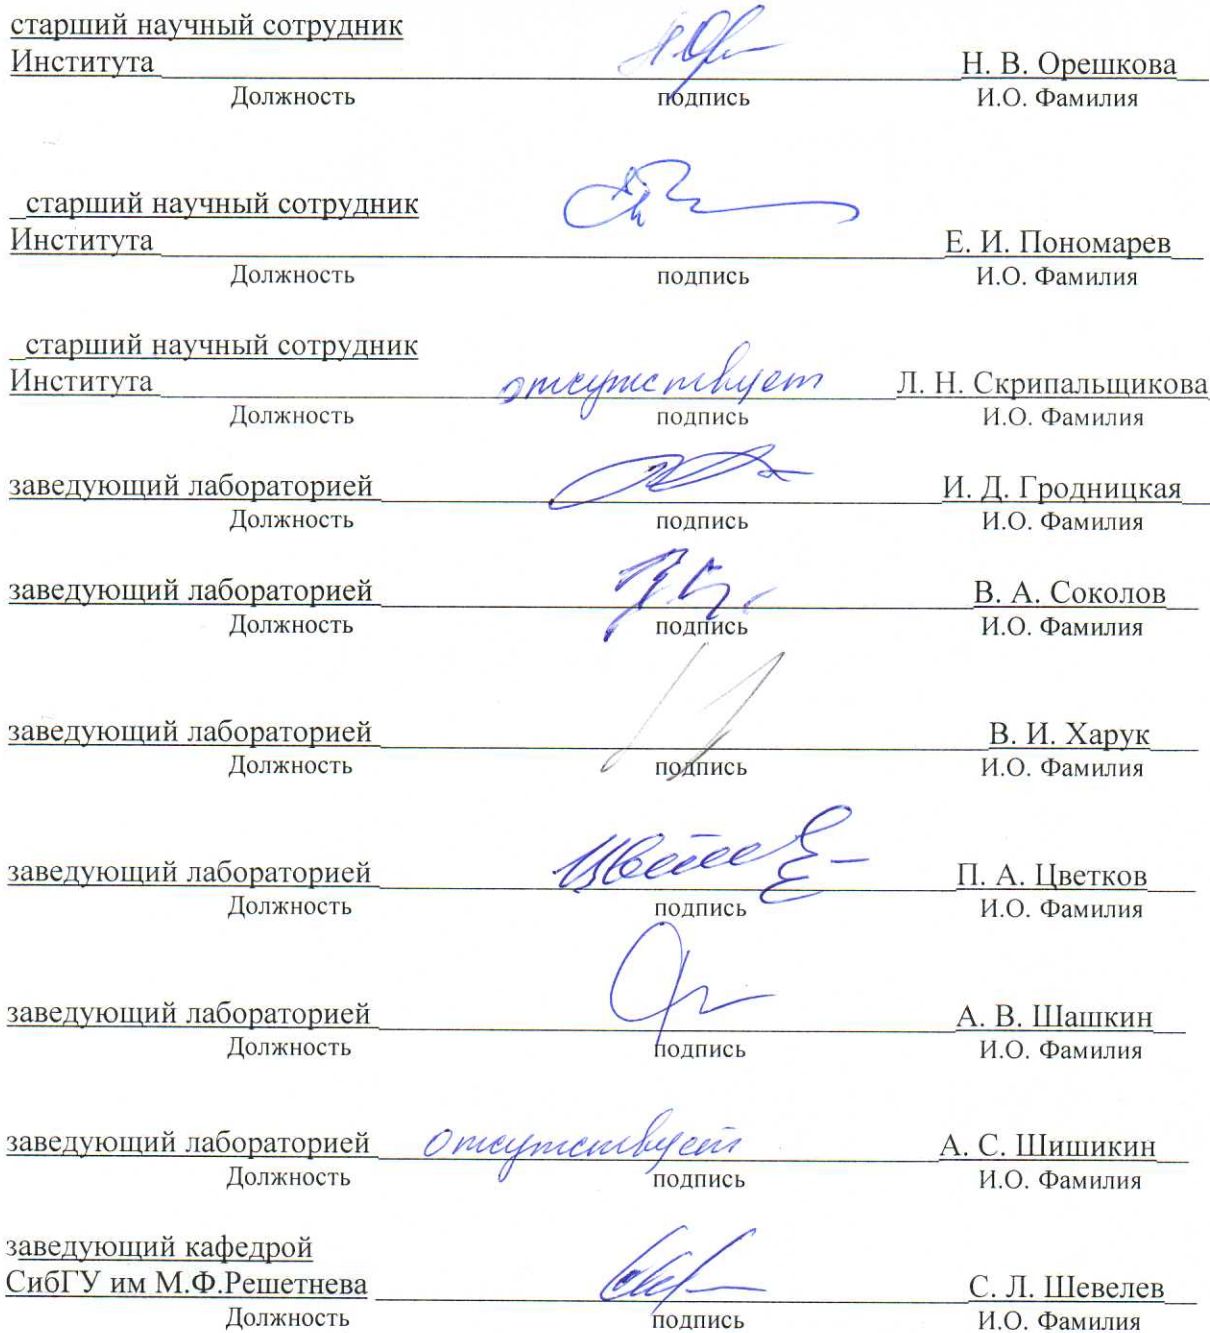 старший научный сотрудник
Института Н. В. Орешкова
Должность подпись И.О. Фамилия
старший научный сотрудник
Института Е. И. Пономарев
Должность подпись И.О. Фамилия
старший научный сотрудник
Института отсутствует Л. Н. Скрипальщикова
Должность подпись И.О. Фамилия
заведующий лабораторией И. Д. Гродницкая
Должность подпись И.О. Фамилия
заведующий лабораторией В. А. Соколов
Должность подпись И.О. Фамилия
заведующий лабораторией В. И. Харук
Должность подпись И.О. Фамилия
заведующий лабораторией П. А. Цветков
Должность подпись И.О. Фамилия
заведующий лабораторией А. В. Шашкин
Должность подпись И.О. Фамилия
заведующий лабораторией отсутствует А. С. Шишикин
Должность подпись И.О. Фамилия
заведующий кафедрой
СибГУ им М.Ф.Решетнева С. Л. Шевелев
Должность подпись И.О. Фамилия